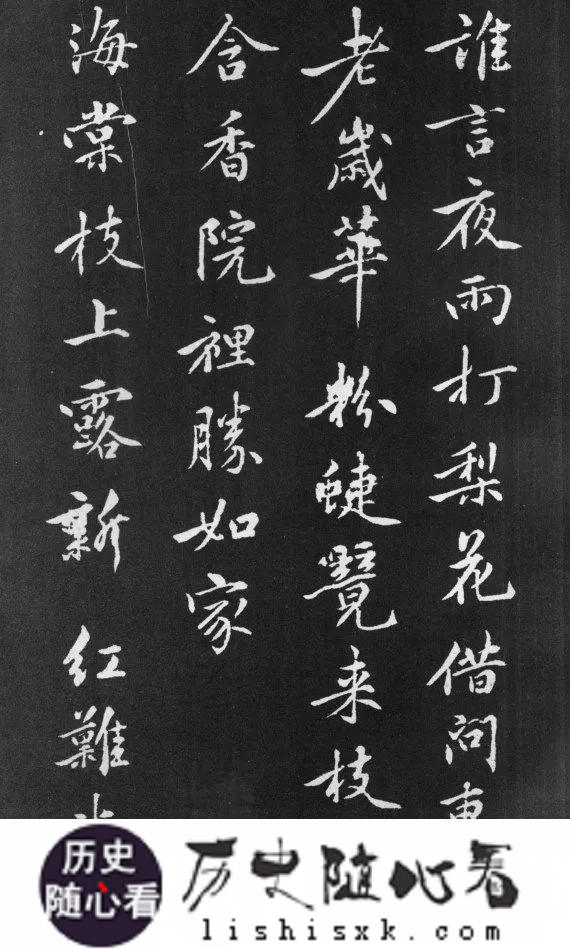 誰言夜雨打梨花借問東
老歲華粉蜨覺来枝
含香院裡勝如家
海棠枝上露新紅難
历史
随心看
历史随心看
lishisxk.com